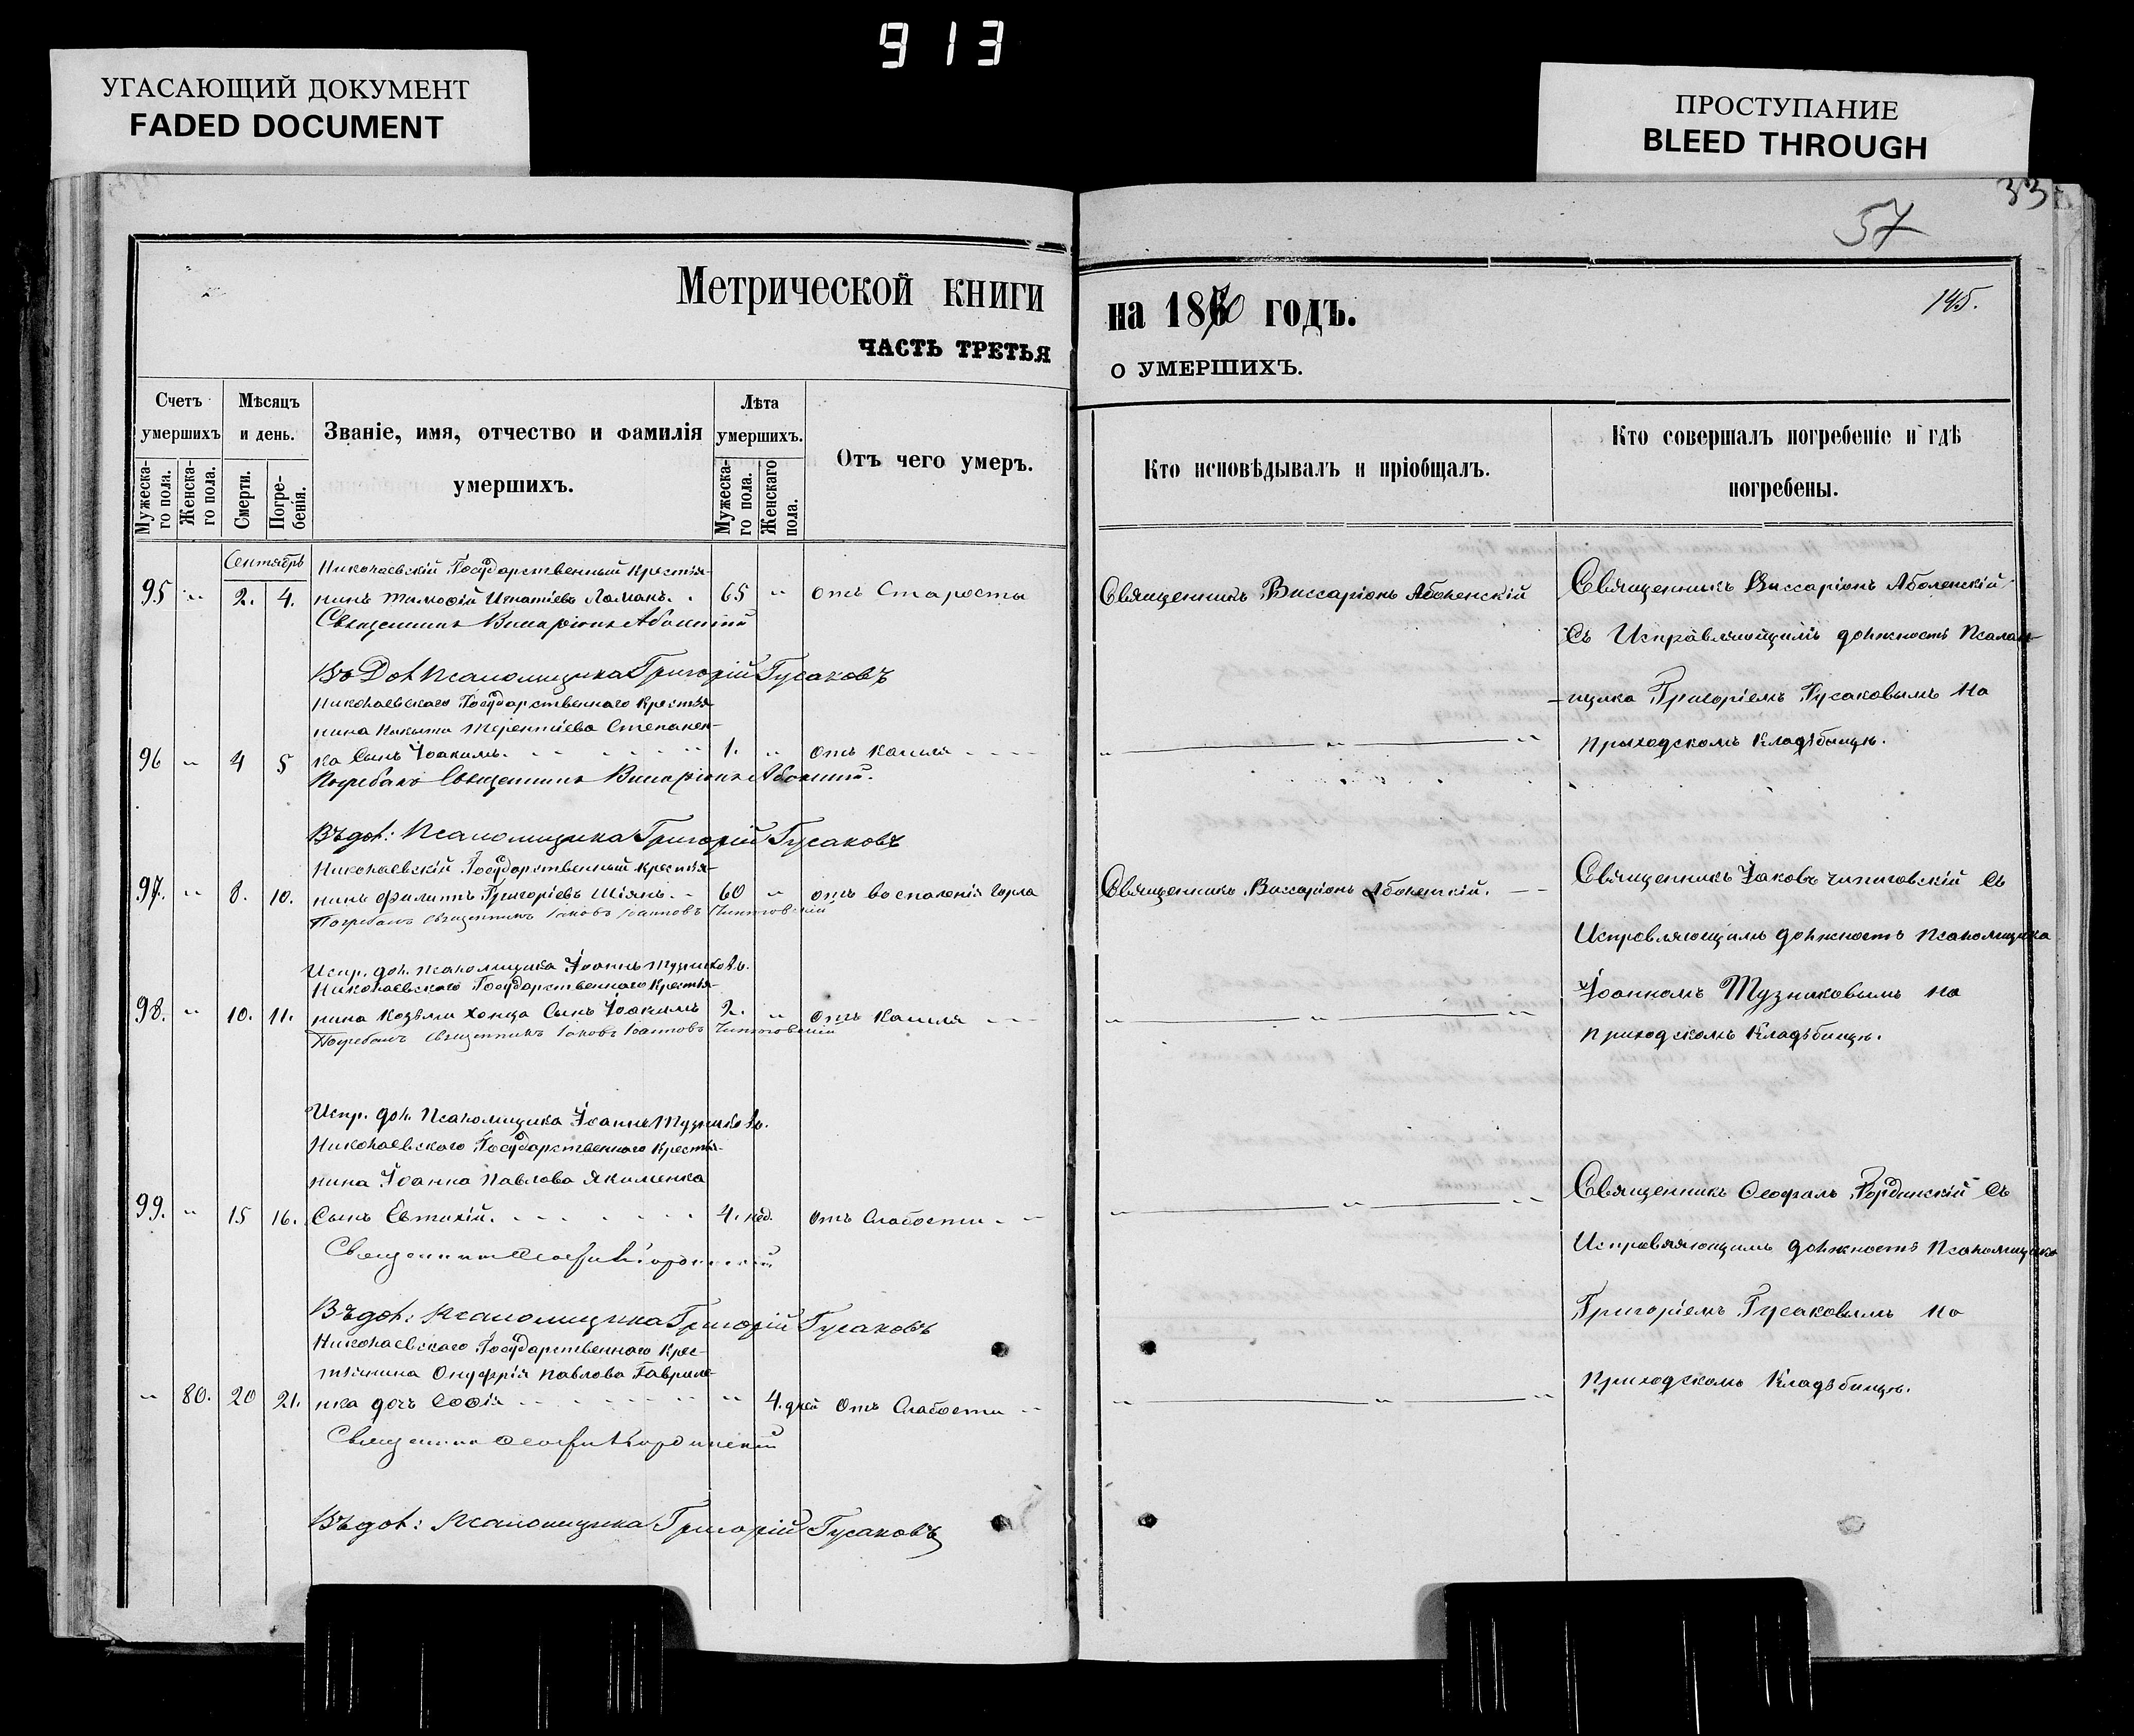 913
УГАСАЮЩИЙ ДОКУМЕНТ
FADED DOCUMENT
ПРОСТУПАНИЕ
BLEED THROUGH
33
57
145.
Метрической книги на 1870 годъ.
ЧАСТЬ ТРЕТЬЯ О УМЕРШИХЪ.
Счетъ умершихъ
Мужескаго пола.
Женскаго пола.
Мѣсяцъ и день.
Смерти.
Погребенія.
Званіе, имя, отчество и фамилія умершихъ.
Лѣта умершихъ.
Мужескаго пола.
Женскаго пола.
Отъ чего умеръ.
Кто исповѣдывалъ и пріобщалъ.
Кто совершалъ погребеніе и гдѣ погребены.
Сентябрь
Николаевскій Государственный Крестья-
95 " 2. 4. нинъ Тимофій Игнатіевъ Ломакъ. 65 " отъ Старости
Священникъ Виссаріонъ Аболенскій
Въ Дол Псаломщика Григорій Гусаковъ
Николаевскаго Государственнаго Крестья-
нина Никиты Терентіева Степанен-
96 " 4 5 ка Сынъ Іоакимъ. 1. " отъ кашля
Погребалъ Священникъ Виссаріонъ Аболенскій.
Въ дол: Псаломщика Григорій Гусаковъ
Николаевскій Государственный Крестья-
97. " 8. 10. нинъ Филиппъ Григоріевъ Шіянъ. 60 " отъ воспаленія горла
Погребалъ священникъ Іаковъ Іоанновъ Чипиговскій
Испр. дол. псаломщика Іоаннъ Тузниковъ.
Николаевскаго Государственнаго Крестья-
98. " 10. 11. нина Козьми Хонца Сынъ Іоакимъ 2. " отъ Кашля
Погребалъ священникъ Іаковъ Іоанновъ Чипиговскій
Испр. дол. Псаломщика Іоаннъ Тузниковъ.
Николаевскаго Государственнаго Крестья-
нина Іоанна Павлова Якименка
99. " 15 16. Сынъ Евтихій. 4. нед. отъ Слабости
Священникъ Ѳеофилъ
Въ дол: Псаломщика Григорій Гусаковъ
Николаевскаго Государственнаго Крес-
тьянина Онуфрія Павлова Гаврилe-
" 80. 20 21. нка дочь Софія " 4. дней отъ Слабости
Священникъ Ѳеофилъ
Въ дол: Псаломщика Григорій Гусаковъ
Священникъ Виссаріонъ Аболенскій
Священникъ Виссаріонъ Аболенскій.
Священникъ Виссаріонъ Аболенскій
Съ Исправляющимъ должность Псалом-
щика Григоріемъ Гусаковымъ на
приходскомъ Кладбищѣ.
Священникъ Іаковъ Чипиговскій Съ
Исправляющимъ должность псаломщика
Іоанномъ Тузниковымъ на
приходскомъ Кладбищѣ.
Священникъ Ѳеофилъ Съ
Исправляющимъ должность псаломщика
Григоріемъ Гусаковымъ на
приходскомъ Кладбищѣ.